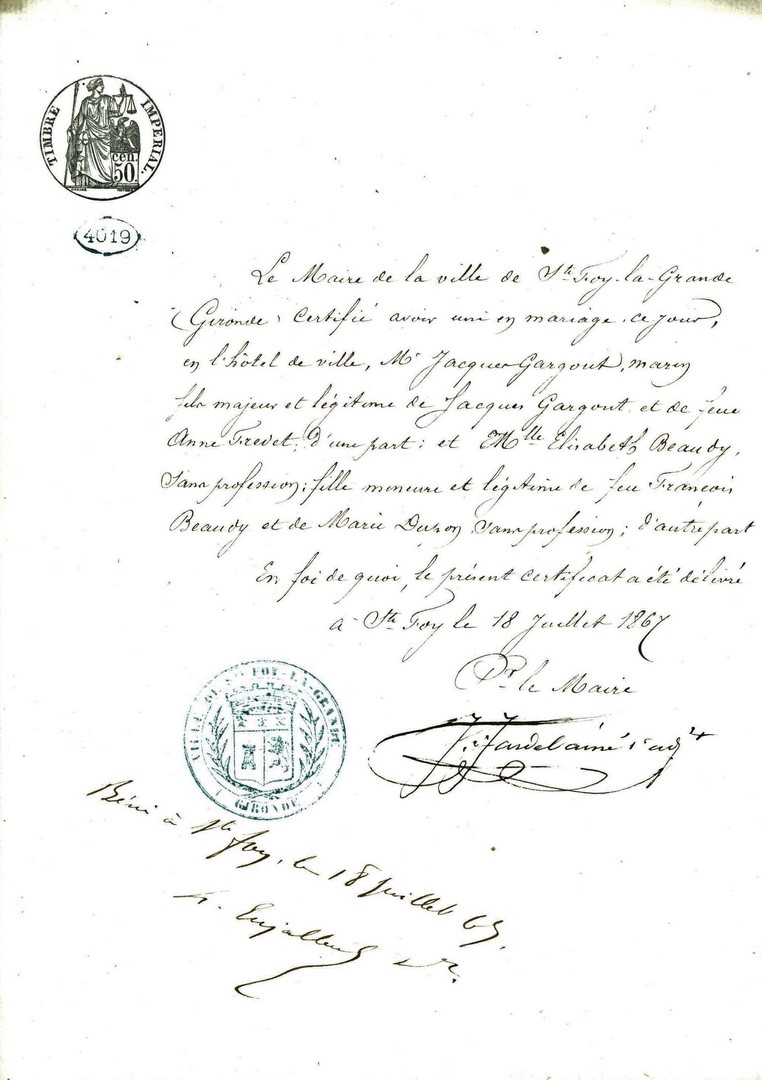 TIMBRE IMPERIAL.
cen.
50.
4019
Le Maire de la ville de Ste Foy-la-Grande
(Gironde) certifie avoir uni en mariage ce jour,
en l'hôtel de ville, Mr Jacques Gargout, marin
fils majeur et légitime de Jacques Gargout, et de feue
Anne Trevet, d'une part; et Mlle Elisabeth Beaudy,
Sans profession; fille mineure et légitime de feu François
Beaudy et de Marie Duron Sans profession; d'autre part
En foi de quoi, le présent certificat a été délivré
à Ste Foy le 18 Juillet 1867
Pr le Maire
Jardelainé 1er adjt
VILLE DE STE FOY-LA-GRANDE
GIRONDE
Béni à Ste Foy, le 18 juillet 67,